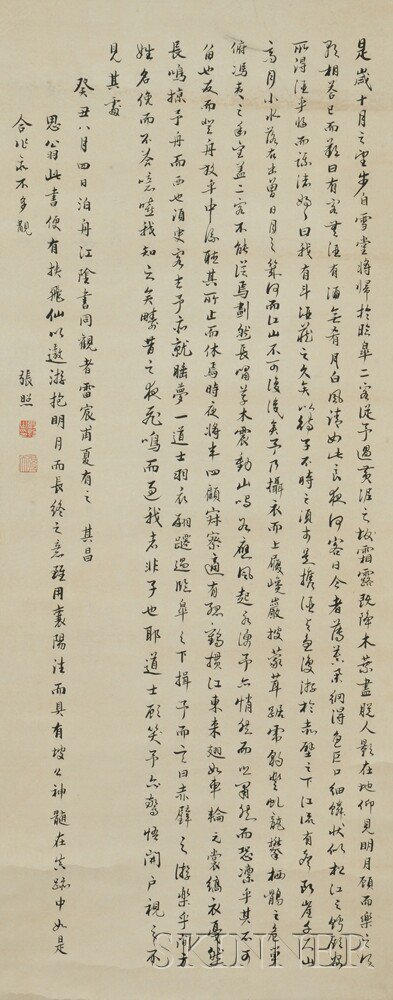 是歲十月之望步自雪堂將歸於臨皋二客從予過黃泥之坂霜露既降木葉盡脫人影在地仰見明月顧而樂之行
歌相答已而歎曰有客無酒有酒無肴月白風清如此良夜何客曰今者薄暮舉網得魚巨口細鱗狀似松江之鱸顧安
所得酒乎歸而謀諸婦婦曰我有斗酒藏之久矣以待子不時之須於是攜酒與魚復游於赤壁之下江流有聲斷岸千尺山
高月小水落石出曾日月之幾何而江山不可復識矣予乃攝衣而上履巉巖披蒙茸踞虎豹登虬龍攀栖鶻之危巢
俯馮夷之幽宮蓋二客不能從焉劃然長嘯草木震動山鳴谷應風起水湧予亦悄然而悲肅然而恐凜乎其不可
留也反而登舟放乎中流聽其所止而休焉時夜將半四顧寂寥適有孤鶴橫江東來翅如車輪元裳縞衣戛然
長鳴掠予舟而西也須臾客去予亦就睡夢一道士羽衣翩躚過臨皋之下揖予而言曰赤壁之游樂乎問其
姓名俛而不答噫嘻我知之矣疇昔之夜飛鳴而過我者非子也耶道士顧笑予亦驚悟開戶視之不
見其處
癸丑八月四日泊舟江陰書同觀者雷宸甫夏有之 其昌
思翁此書便有挾飛仙以遨游抱明月而長終之意雖用襄陽法而具有坡公神髓在真跡中如是
合作亦不多覯
張照
SKINNER